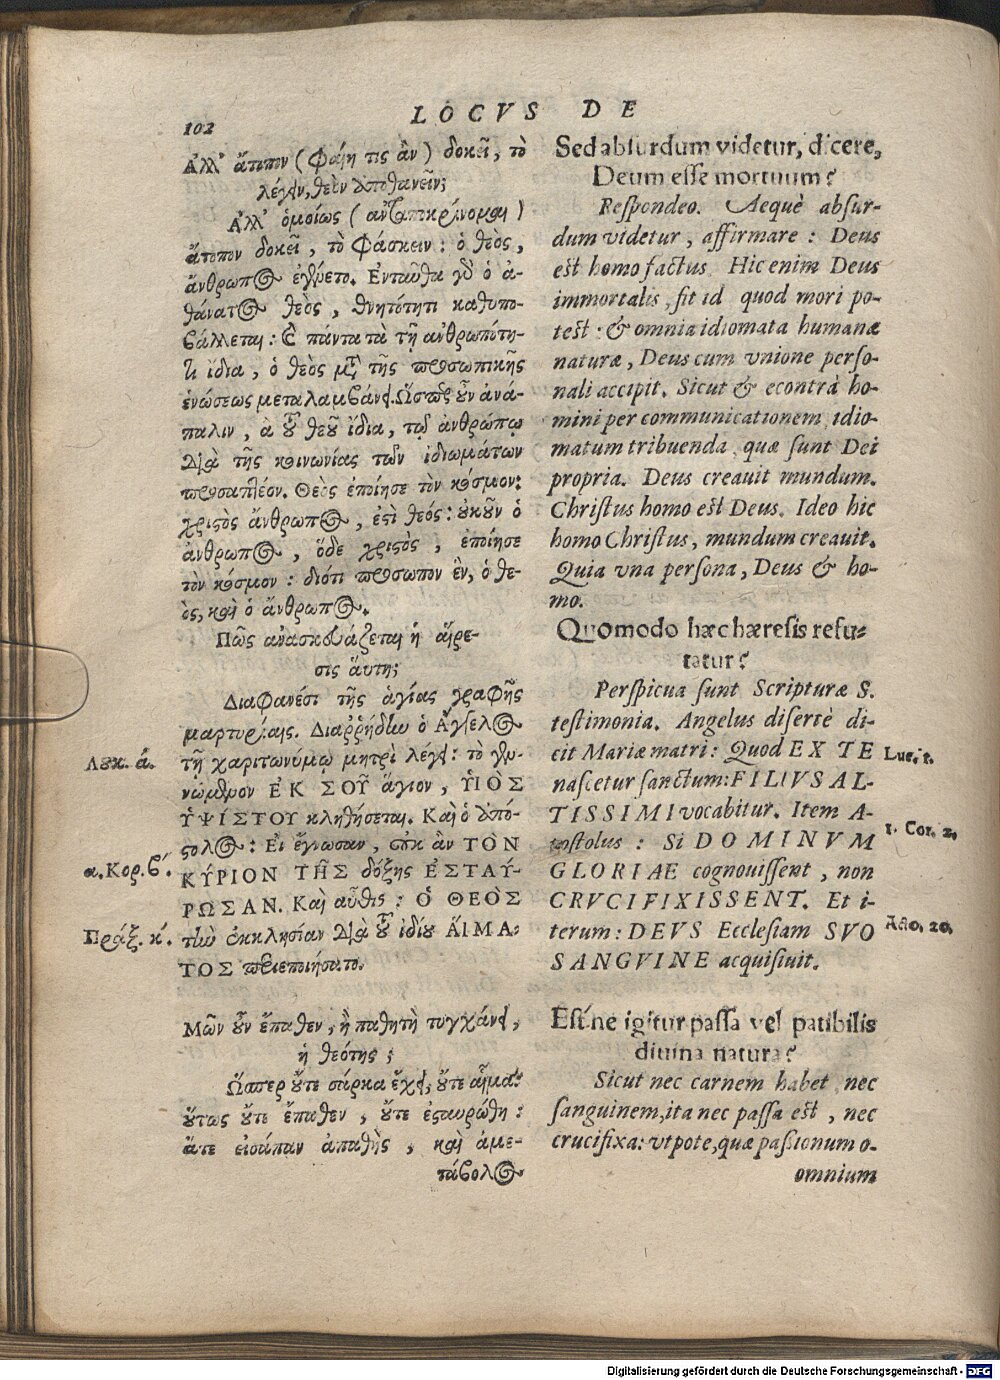 102
LOCVS DE
Ἀλλ' ἄτοπον (φαίη τις ἂν) δοκεῖ, τὸ
λέγειν, θεὸν ἀποθανεῖν;
Ἀλλ' ὁμοίως (ἀνταποκρίνομαι)
ἄτοπον δοκεῖ, τὸ φάσκειν: ὁ θεὸς,
ἄνθρωπος ἐγένετο. Ἐνταῦθα γὰρ ὁ ἀ-
θάνατος θεὸς, θνητότητι καθυπο-
βάλλεται: καὶ πάντα τὰ τῇ ἀνθρωπότη-
τι ἴδια, ὁ θεὸς μετὰ τῆς προσωπικῆς
ἑνώσεως μεταλαμβάνει. Ὥσπερ οὖν ἀνά-
παλιν, ἃ τοῦ θεοῦ ἴδια, τῷ ἀνθρώπῳ
διὰ τῆς κοινωνίας τῶν ἰδιωμάτων
προσαπτέον. Θεὸς ἐποίησε τὸν κόσμον:
χριστὸς ἄνθρωπος, ἐστὶ θεός: οὐκοῦν ὁ
ἄνθρωπος, ὅδε χριστὸς, ἐποίησε
τὸν κόσμον: διότι πρόσωπον ἓν, ὁ θε-
ὸς, καὶ ὁ ἄνθρωπος.
Πῶς ἀνασκευάζεται ἡ αἵρε-
σις ἅυτη;
Διαφανέσι τῆς ἁγίας γραφῆς
μαρτυρίαις. Διαῤῥήδην ὁ Ἄγγελος
Λουκ. ά.
τῇ χαριτωνύμῳ μητρὶ λέγει: τὸ γεν-
νώμενον ἘΚ ΣΟΥ͂ ἅγιον, ὙΙῸΣ
ὙΨΊΣΤΟΥ κληθήσεται. Καὶ ὁ ἀπό-
στολος: Εἰ ἔγνωσαν, οὐκ ἂν ΤῸΝ
α. Κορ. β.
ΚΎΡΙΟΝ ΤΗ͂Σ δόξης ἘΣΤΑΎ-
ΡΩΣΑΝ. Καὶ αὖθις: Ὁ ΘΕῸΣ
Πράξ. κ.
τὴν ἐκκλησίαν διὰ τοῦ ἰδίου ἍΙΜΑ-
ΤΟΣ περιεποιήσατο.
Μῶν οὖν ἔπαθεν, ἢ παθητὴ τυγχάνει,
ἡ θεότης;
Ὥσπερ οὔτε σάρκα ἔχει, οὔτε αἷμα:
οὕτως οὔτε ἔπαθεν, οὔτε ἐσταυρώθη:
ἅτε εἰσάπαν ἀπαθὴς, καὶ ἀμε-
τάβολος
Sed absurdum videtur, dicere,
Deum esse mortuum?
Respondeo. Aequè absur-
dum videtur, affirmare: Deus
est homo factus. Hic enim Deus
immortalis, fit id quod mori po-
test: & omnia idiomata humanæ
naturæ, Deus cum vnione perso-
nali accipit. Sicut & econtrà ho-
mini per communicationem idio-
matum tribuenda, quæ sunt Dei
propria. Deus creauit mundum.
Christus homo est Deus. Ideo hic
homo Christus, mundum creauit.
Quia vna persona, Deus & ho-
mo.
Quomodo hæc hæresis refu-
tatur?
Perspicua sunt Scripturæ S.
testimonia. Angelus disertè di-
cit Mariæ matri: Quod EX TE
Luc. 1.
nascetur sanctum: FILIVS AL-
TISSIMI vocabitur. Item A-
postolus: Si DOMINVM
1. Cor. 2.
GLORIAE cognouissent, non
CRVCIFIXISSENT. Et i-
terum: DEVS Ecclesiam SVO
Acto. 20.
SANGVINE acquisiuit.
Estne igitur passa vel patibilis
diuina natura?
Sicut nec carnem habet nec
sanguinem, ita nec passa est, nec
crucifixa: vtpote, quæ passionum o-
omnium
Digitalisierung gefördert durch die Deutsche Forschungsgemeinschaft - DFG